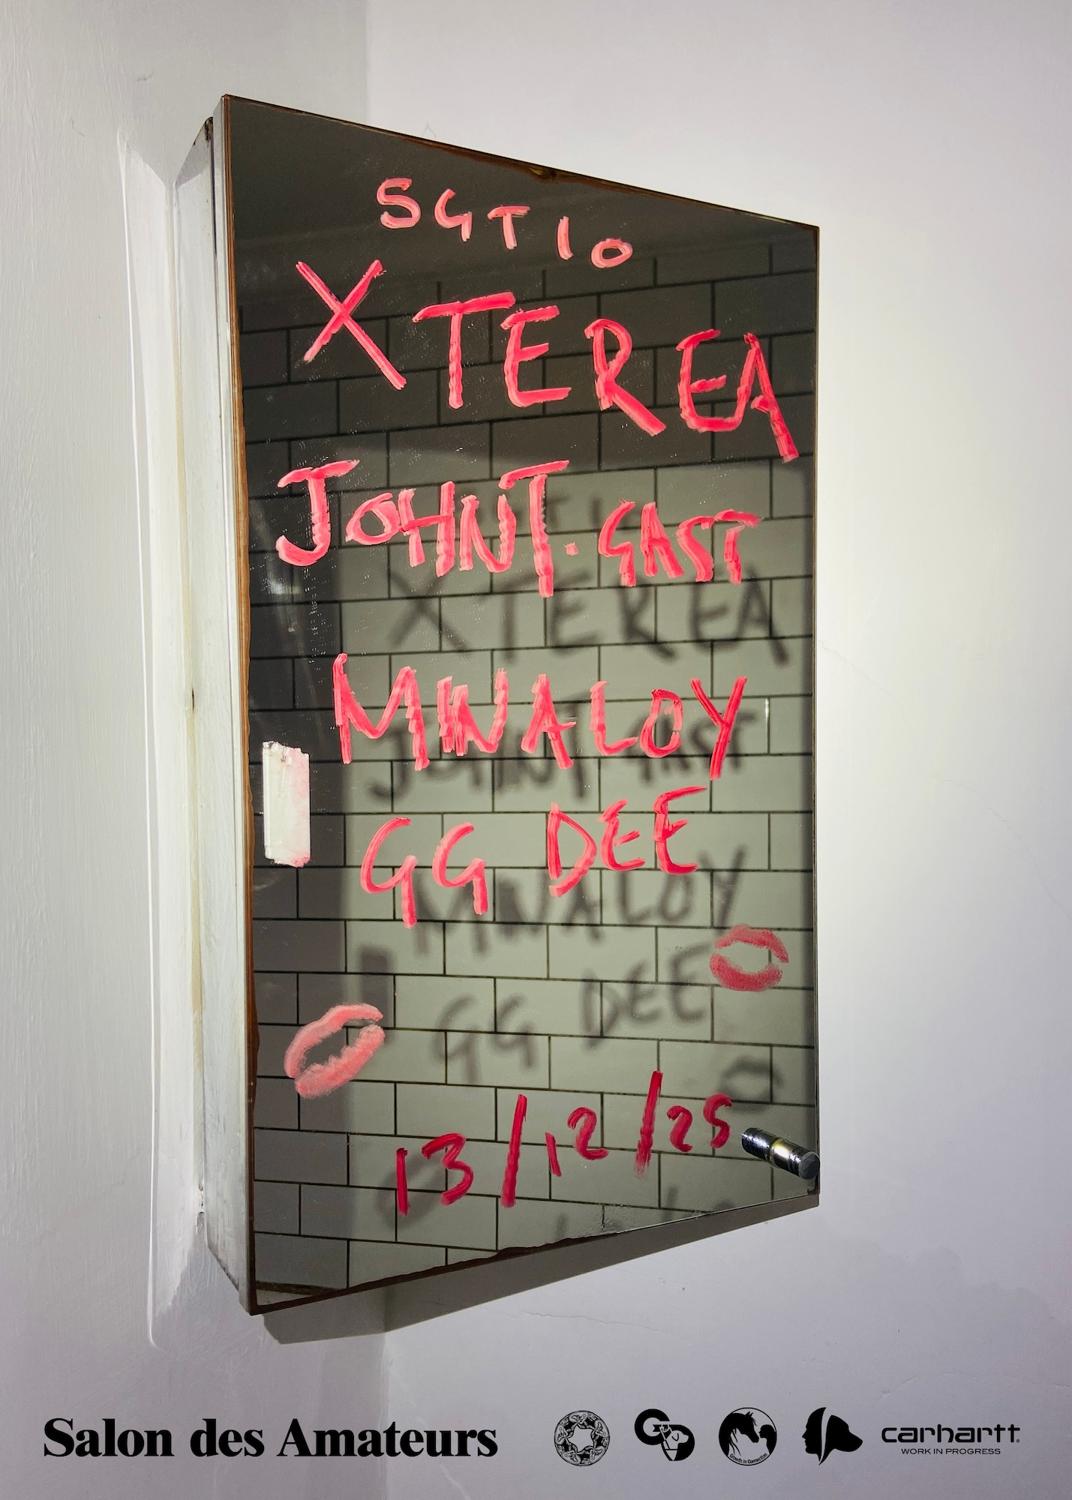 SGT 10
XTEREA
JOHNT. GAST
MINALOY
GG DEE
13/12/25
Salon des Amateurs
carhartt
WORK IN PROGRESS